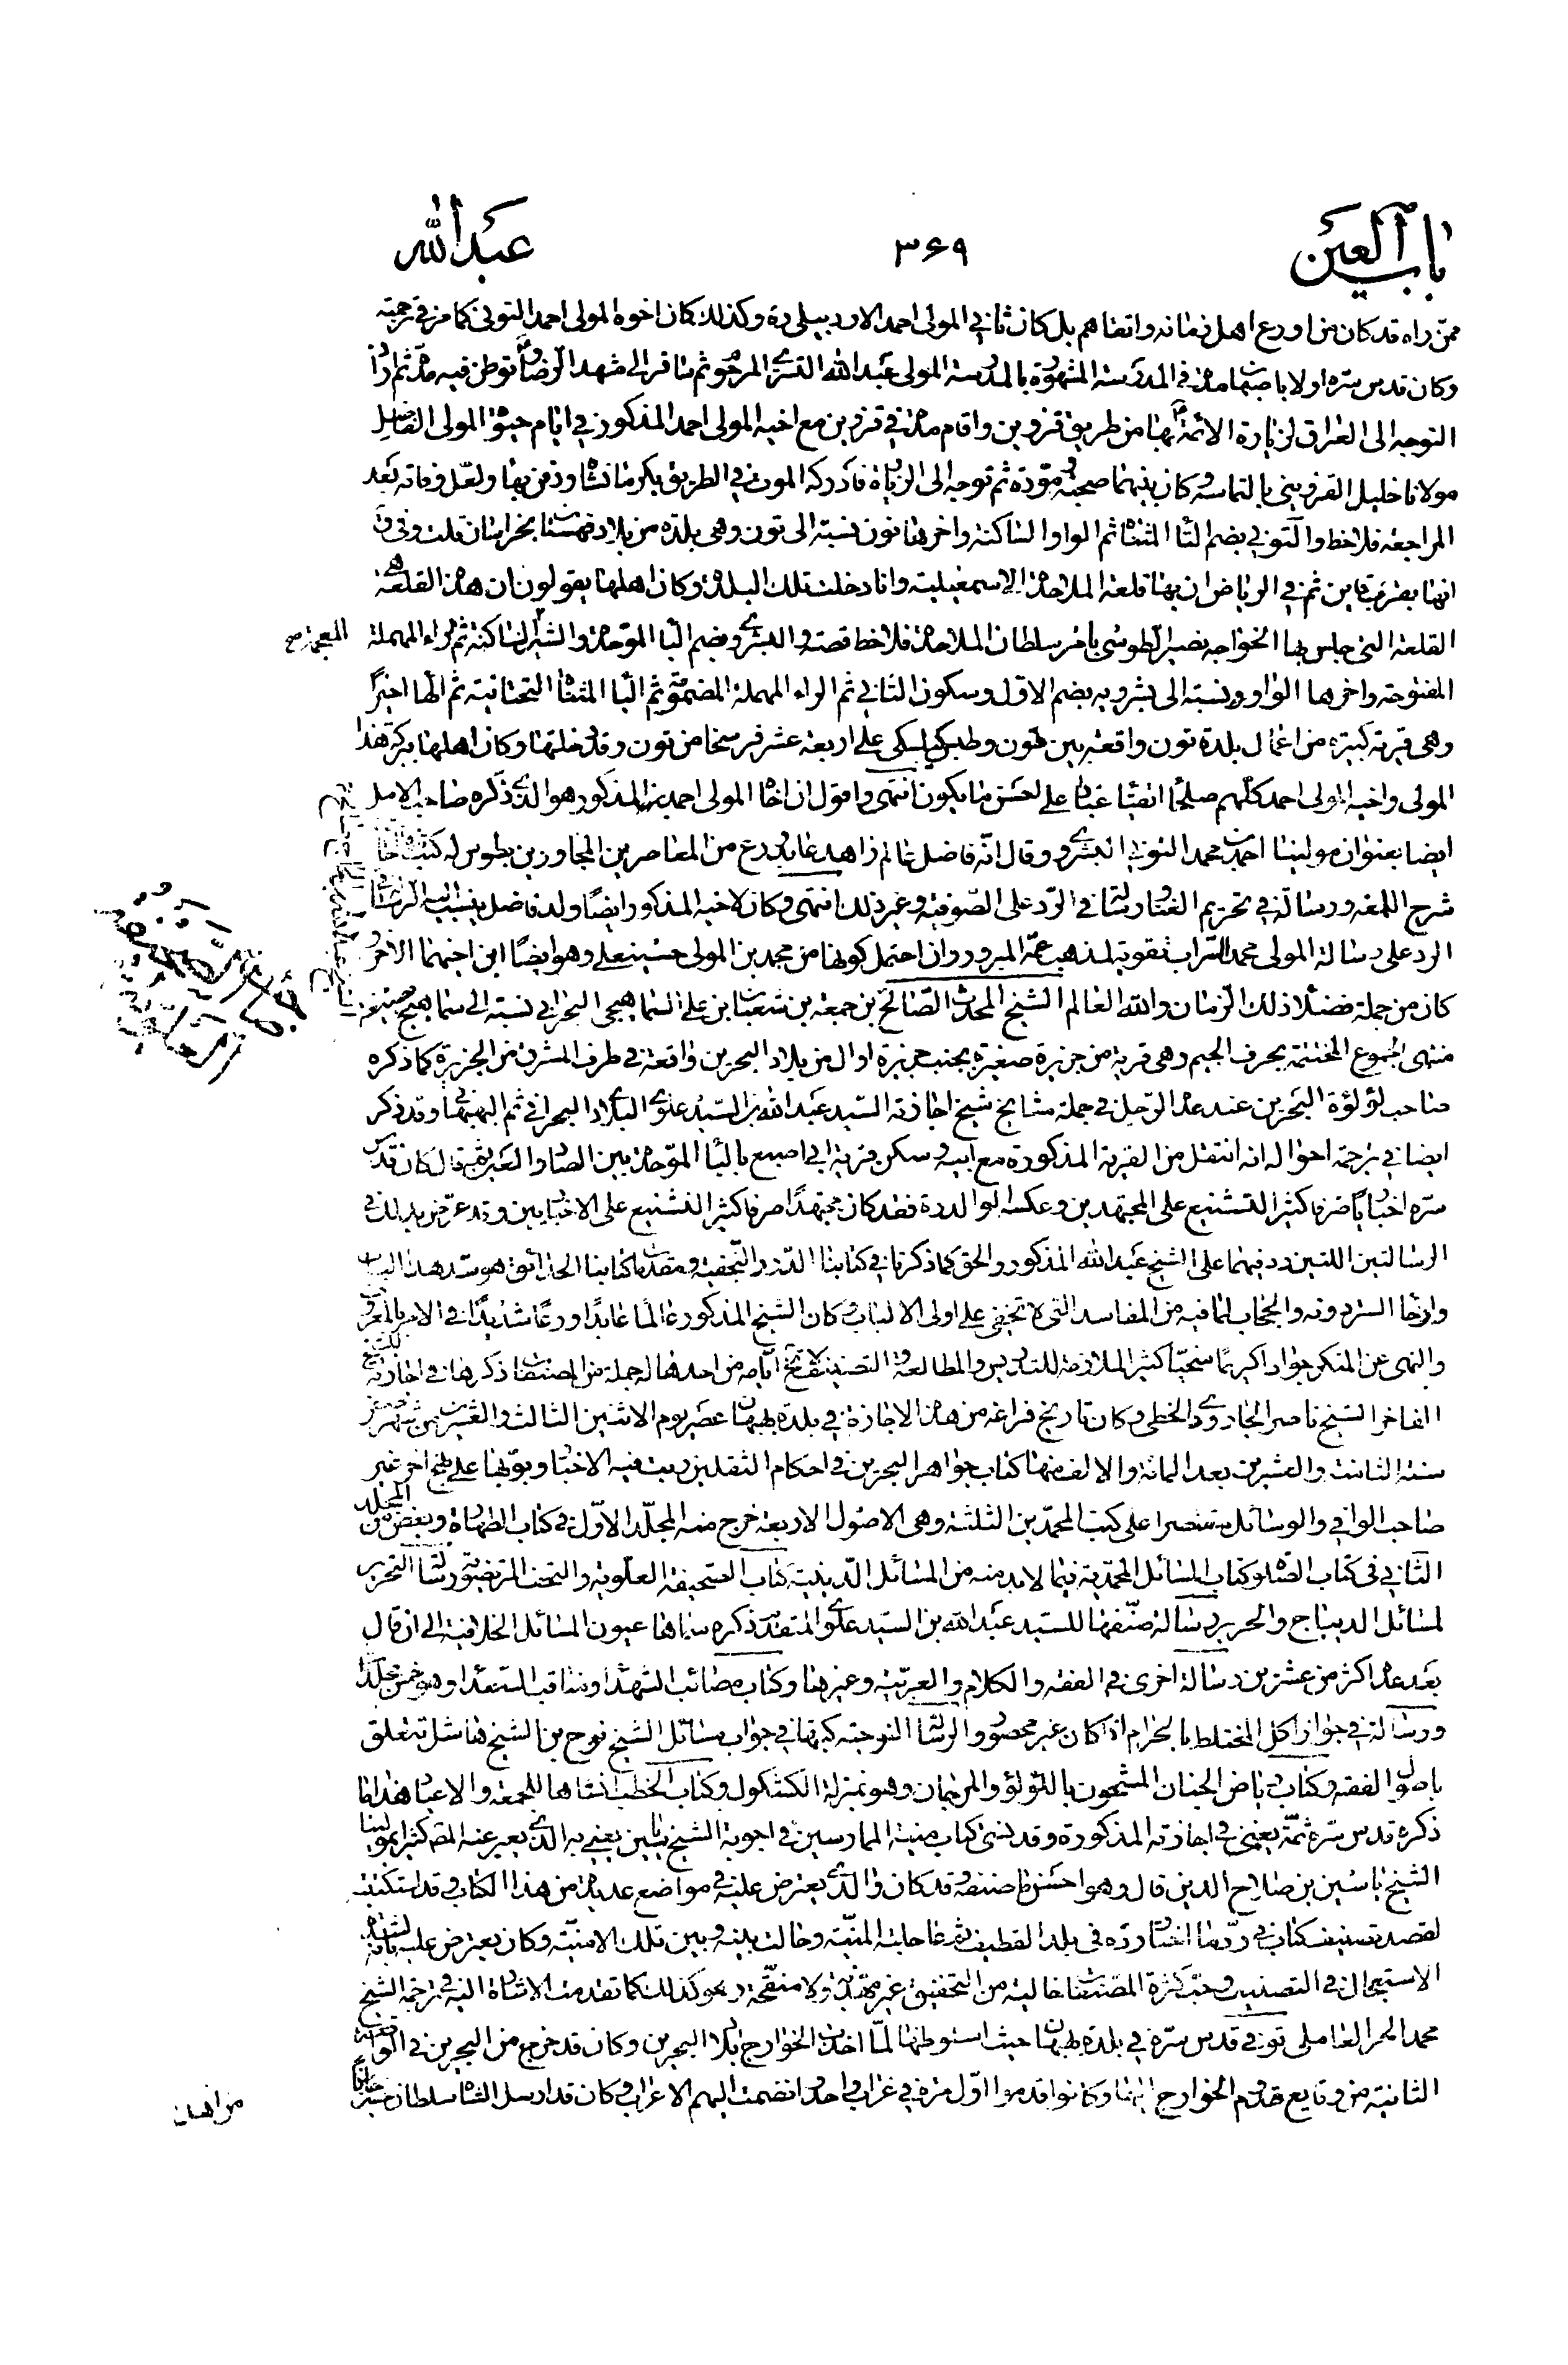 باب العين
۳۶۹
عبد الله
ممن راه قد كان من اورع اهل زمانه واتقاهم بل كان ثاني المولى احمد الاردبيلي ره وكذلك كان اخوه المولى احمد التوني كما مر في ترجمته
وكان قدس سره اولا باصبهان مدة في المدرسة المشهورة بالمدرسة المولى عبد الله التستري المرحوم ثم سافر الى مشهد الرضا وتوطن فيه مدة ثم اراد
التوجه الى العراق لزيارة الائمة بها من طريق قزوين واقام مدة في قزوين مع اخيه المولى احمد المذكور في ايام حيوة المولى الفاضل
مولانا خليل القزويني بالتماسه وكان بينهما صحبة ومودة ثم توجه الى الزيارة فادركه الموت في الطريق بكرمانشاه ودفن بها ولعل وفاته بعد
المراجعة فلاحظ والتوني بضم التا المثناة ثم الواو الساكنة واخرها نون نسبة الى تون وهى بلدة من بلاد قهستان بخراسان قلت وفي
انها بقرب قاين ثم في الرياض ان بها قلعة الملاحدة الاسمعيلية وانا دخلت تلك البلدة وكان اهلها يقولون ان هذه القلعة هي
القلعة التي جلس بها الخواجه نصير الطوسي بامر سلطان الملاحدة فلاحظ قصته والبشروي بضم البا الموحدة والشين الساكنة ثم الراء المهملة
المعجمة صح
المفتوحة واخرها الواو نسبة الى بشرويه بضم الاول وسكون الثاني ثم الراء المهملة المضمومة ثم اليا المثناة التحتانية ثم الها اخيرا
وهى قرية كبيرة من اعمال بلدة تون واقعة بين تون وطبس كيلكي على اربعة عشر فرسخا من تون وقد دخلتها وكان اهلها ببركة هذا
المولى واخيه المولى احمد كلهم صلحا اتقيا عبادا على احسن ما يكون انتهى واقول ان اخاه المولى احمد المذكور هو الذي ذكره صاحب الامل
ايضا بعنوان مولينا احمد بن محمد التوني البشروي وقال انه فاضل عالم زاهد عابد ورع من المعاصرين المجاورين بطوس له كتب منها
شرح اللمعه ورسالة في تحريم الغنا ورسالة في الرد على الصوفية وغير ذلك انتهى وكان لاخيه المذكور ايضا ولد فاضل ينسب اليه الرسالة في
الرد على رسالة المولى محمد السراب تقوية لمذهب عمه المبرور وان احتمل كونها من محمد بن المولى حسينعلي وهو ايضا ابن اخيهما الاخر و
كان من جملة فضلاء ذلك الزمان والله العالم الشيخ المحدث الصالح بن جمعة بن شعبان بن علي السماهيجي البحراني نسبة الى سماهيج بصيغة
منتهى الجموع المختتمة بحرف الجيم وهى قرية من جزيرة صغيرة بجنب جزيرة اوال من بلاد البحرين واقعة في طرف المشرق من الجزيرة كما ذكره
صاحب لؤلؤة البحرين عند عد الرجل في جملة مشايخ شيخ اجازته السيد عبد الله بن السيد علوي البلادي البحراني ثم البهبهاني وقد ذكر
ايضا في ترجمة احواله انه انتقل من القرية المذكورة مع ابيه وسكن قرية ابي اصبع بالبا الموحدة بين الصاد والعين ثم قال كان قدس
سره اخباريا صرفا كثير التشنيع على المجتهدين وعكسه الوالد ره فقد كان مجتهدا صرفا كثير التشنيع على الاخباريين وقد عرض بذلك في
الرسالتين اللتين رد فيهما على الشيخ عبد الله المذكور والحق كما ذكرنا في كتابنا الدرر النجفية ومقدمات كتابنا الحدائق هو سد هذا الباب
وارخا الستر دونه والحجاب لما فيه من المفاسد التي لا تخفى على اولى الالباب وكان الشيخ المذكور عالما عابدا ورعا شديدا في الامر بالمعروف
والنهى عن المنكر جوادا كريما سخيا كثير الملازمة للتدريس والمطالعة والتصنيف لا تخ ايامه من احدها له جملة من المصنفات ذكرها في اجازته للشيخ
الفاخر الشيخ ناصر الجارودي الخطي وكان تاريخ فراغه من هذه الاجازة في بلدة بهبهان عصر يوم الاثنين الثالث والعشرين من شهر صفر
سنة الثامنة والعشرين بعد المائة والالف منها كتاب جواهر البحرين في احكام الثقلين رتبت فيه الاخبار وبوبها على نهج اخر غير
صاحب الوافي والوسائل مقتصرا على كتب المحمدين الثلثة وهى الاصول الاربعة خرج منه المجلد الاول في كتاب الطهارة وبعض من المجلد
الثاني في كتاب الصلوة كتاب المسائل المحمدية فيما لا بد منه من المسائل الدينية كتاب الصحيفة العلوية والتحفة المرتضوية رسالة التحرير
لمسائل الديباج والحرير رسالة صنفها للسيد عبد الله بن السيد علوي المتقدم ذكره سماها عيون المسائل الخلافية الى ان قال
بعد عد اكثر من عشرين رسالة اخرى في الفقه والكلام والعربية وغيرها وكتاب مصائب الشهدا ومناقب السعدا وهو خمس مجلدات
ورسالة في جواز اكل المختلط بالحرام اذا كان غير محصور والرسالة النوحية كتبها في جواب مسائل الشيخ نوح بن الشيخ هاشل تتعلق
باصول الفقه وكتاب رياض الجنان المشحون باللؤلؤ والمرجان وهو بمنزلة الكشكول وكتاب الخطب انشاها للجمعة والاعياد هذا ما
ذكره قدس سره ثمة يعني في اجازته المذكورة وقد نسي كتاب منية الممارسين في اجوبة الشيخ ياسين يعني به الذي يعبر عنه المص كثيرا بمولينا
الشيخ ياسين بن صلاح الدين قال وهو احسن ما صنفه وقد كان والدي يعترض عليه في مواضع عديدة من هذا الكتاب وقد استكتبه
لقصد تصنيف كتاب في رد ما اختاره ورده في بلد القطيف ثم عاجلته المنية وحالت بينه وبين تلك الامنية وكان يعترض عليه بانه لشدة
الاستعجال في التصنيف وحب كثرة المصنفات خالية من التحقيق غير مهذبة ولا منقحة وهو كذلك كما تقدمت الاشارة اليه في ترجمة الشيخ
محمد الحر العاملي توفي قدس سره في بلدة بهبهان حيث استوطنها لما اخذت الخوارج بلاد البحرين وكان قد خرج من البحرين في الواقعة
الثانية من وقايع قدوم الخوارج اليها وكانوا قدموا اول مرة في غراب واحد وانضمت اليهم الاعراب وكان قد ارسل الشاه سلطان حسين
من اهل